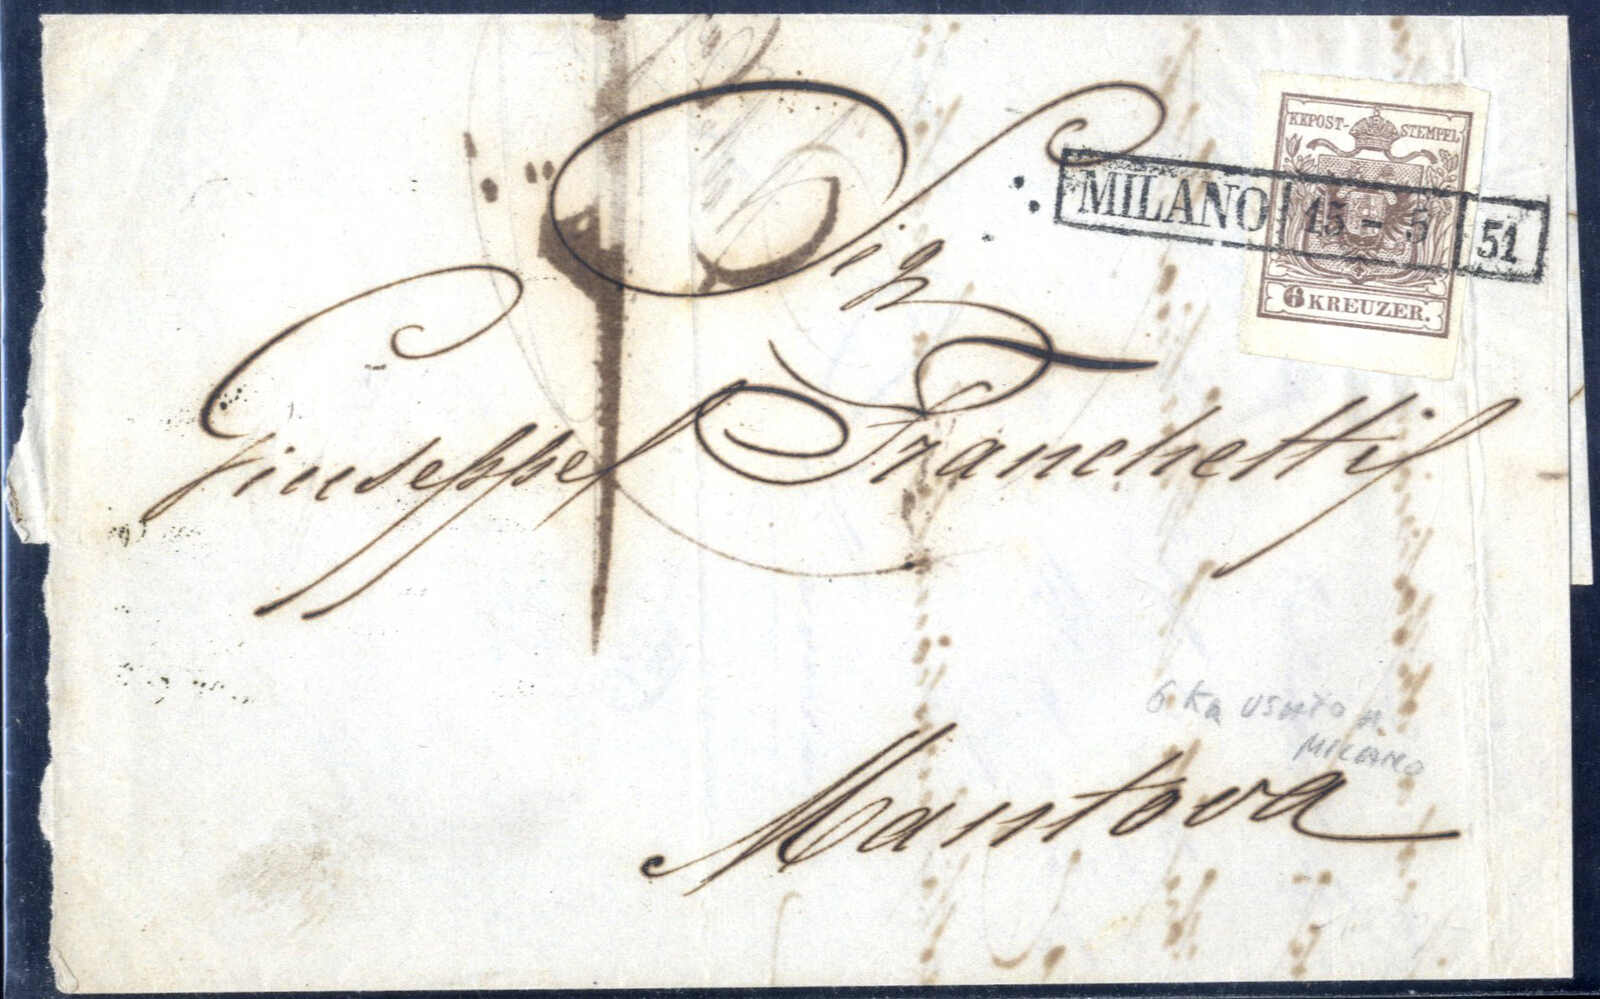 KKPOST-STEMPEL
MILANO 15 - 5 51
6 KREUZER.
Sig
Giuseppe Franchetti
6 Kr USATO A
MILANO
Mantova